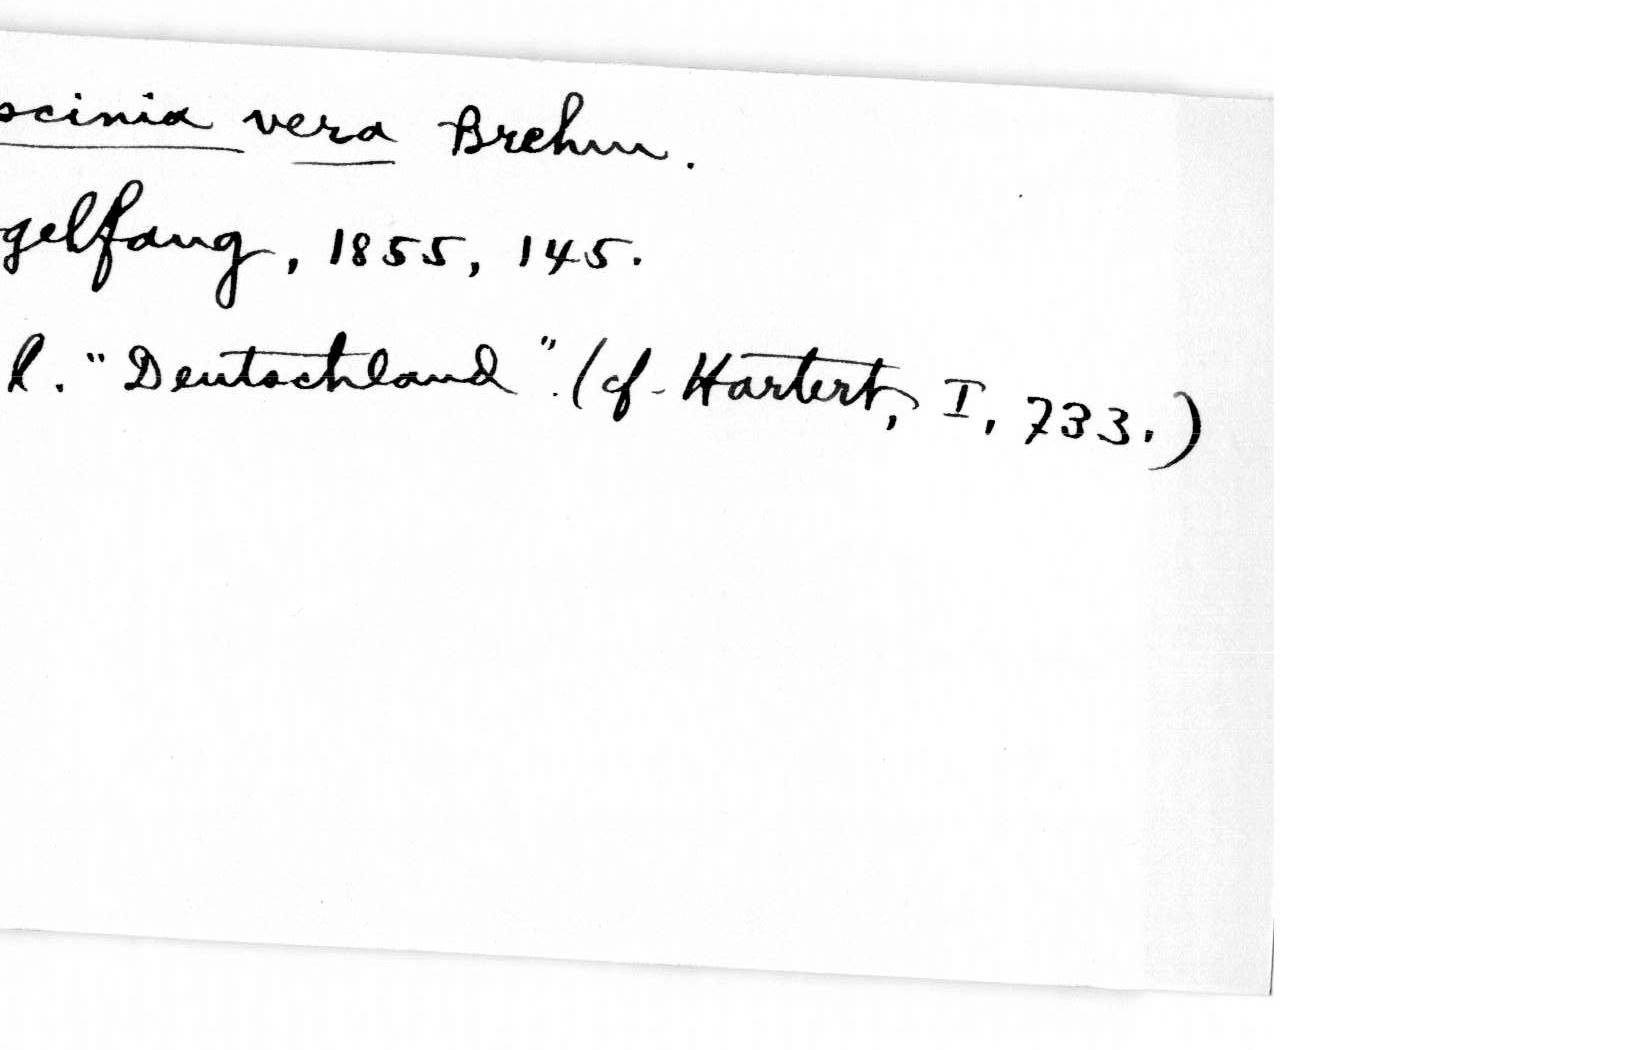 scinia vera Brehm.
gelfang, 1855, 145.
l. "Deutschland". (cf. Hartert, I, 733.)